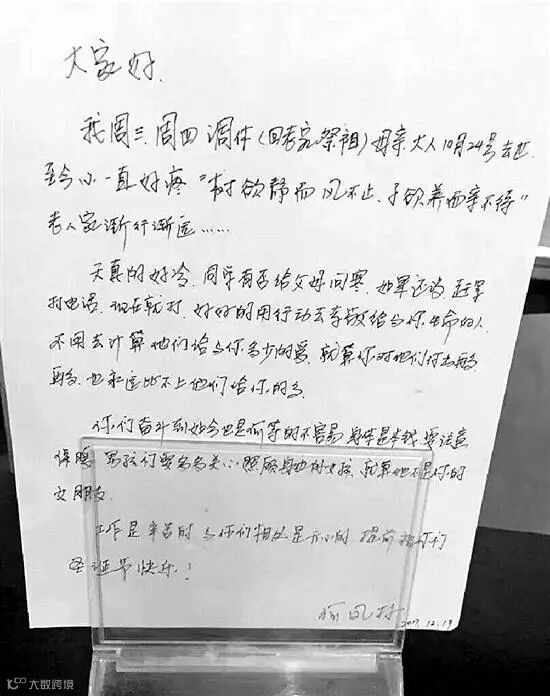 大家好.
我周三、周四调休(回老家祭祖)母亲大人10月24号去世
至今心一直好疼"树欲静而风不止、子欲养而亲不待"
老人家渐行渐远……
天真的好冷、同学有否给父母问寒、如果还没 赶早
打电话、现在就打、好好的用行动去孝敬给与你生命的人、
不用去计算他们给与你多少的爱、就算你对他们付出再多
再多、也永远比不上他们给你的多
你们奋斗到如今也是何等的不容易 身体是本钱、要注意
保暖 男孩们要多多关心照顾身边的女孩、就算她不是你的
女朋友
工作是辛苦的 与你们相处是开心的 提前祝你们
圣诞节快乐!
2017.12.19
大数跨境